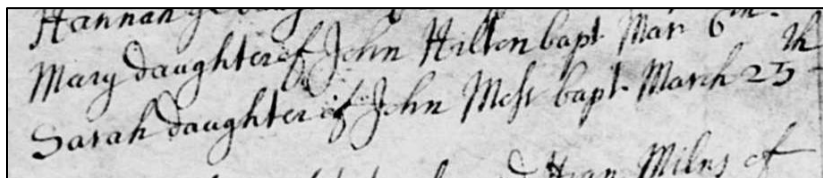 Hannah
Mary daughter of John Hilton bapt Mar 6th
Sarah daughter of John bapt. March 25th
Milns of